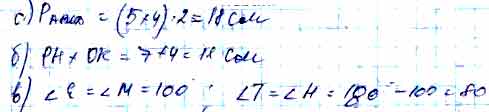 с) P = (5+4)·2 = 18 см
б) PH + OK = 7+4 = 11 см
в) ∠E = ∠M = 100° ; ∠T = ∠H = 180 - 100 = 80